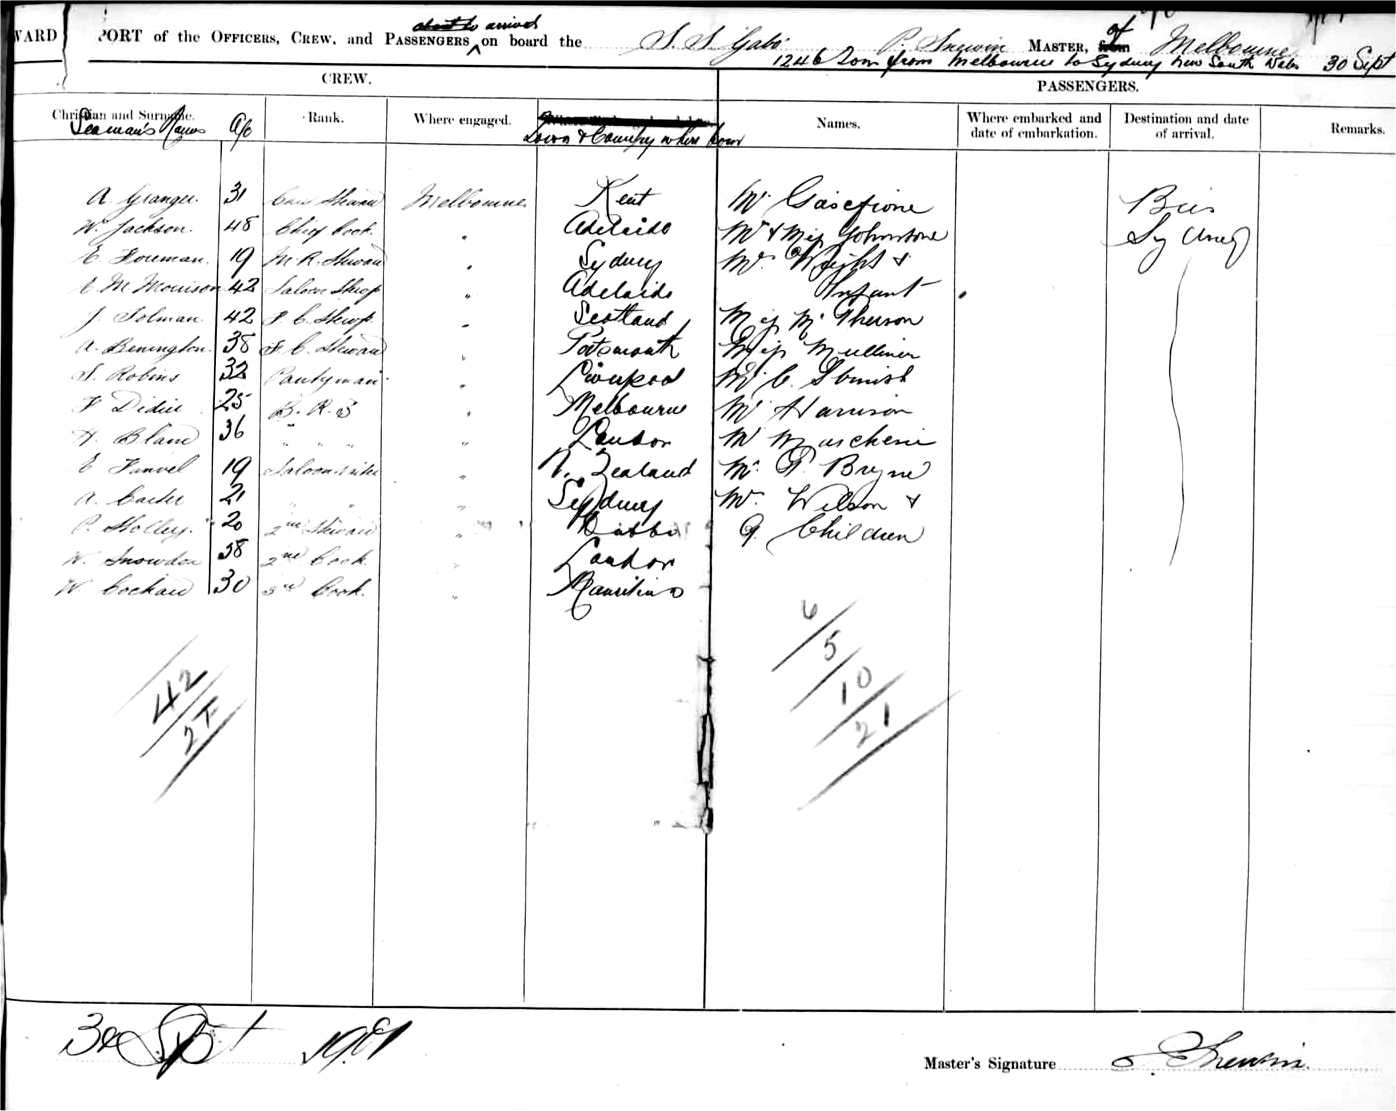 WARD
PORT of the OFFICERS, CREW, and PASSENGERS on board the S. S. Gabo P. Shewin MASTER, of Melbourne
about to arrived
1246 Tons from Melbourne to Sydney New South Wales 30 Sept
CREW. PASSENGERS.
Christian and Surname. Rank. Where engaged. Names. Where embarked and date of embarkation. Destination and date of arrival. Remarks.
Seaman's Names Age Town & Country where born
A Granger. 31 Steward Melbourne Kent Mr Gascoine Bris
W. Jackson. 48 Chief Cook " Adelaide Mr & Miss Johnstone Sydney
E Foreman. 19 M R. Steward " Sydney Mrs Wright &
E M Morrison 42 Saloon " Adelaide Infant
J Solman 42 F C. " Scotland Miss McPherson
A. Benington. 38 F C. Steward " Portsmouth Miss Mulliner
S. Robins 32 Pantryman " Liverpool Mr C.
F Didier 25 B. R. S " Melbourne Mr Harrison
H. Bland 36 " " " " London Mr
E Fanvel 19 Saloon " N. Zealand Mr P. Bryne
A. Carter 21 " " Sydney Mrs Wilson &
P. Sholley. 20 2nd Steward " Dubbo 9 Children
W. Snowden 38 2nd Cook " London
W Cockard 30 3rd Cook. " Mauritius
42
21
6
5
10
21
30 Sept 1901
Master's Signature P. Shewin